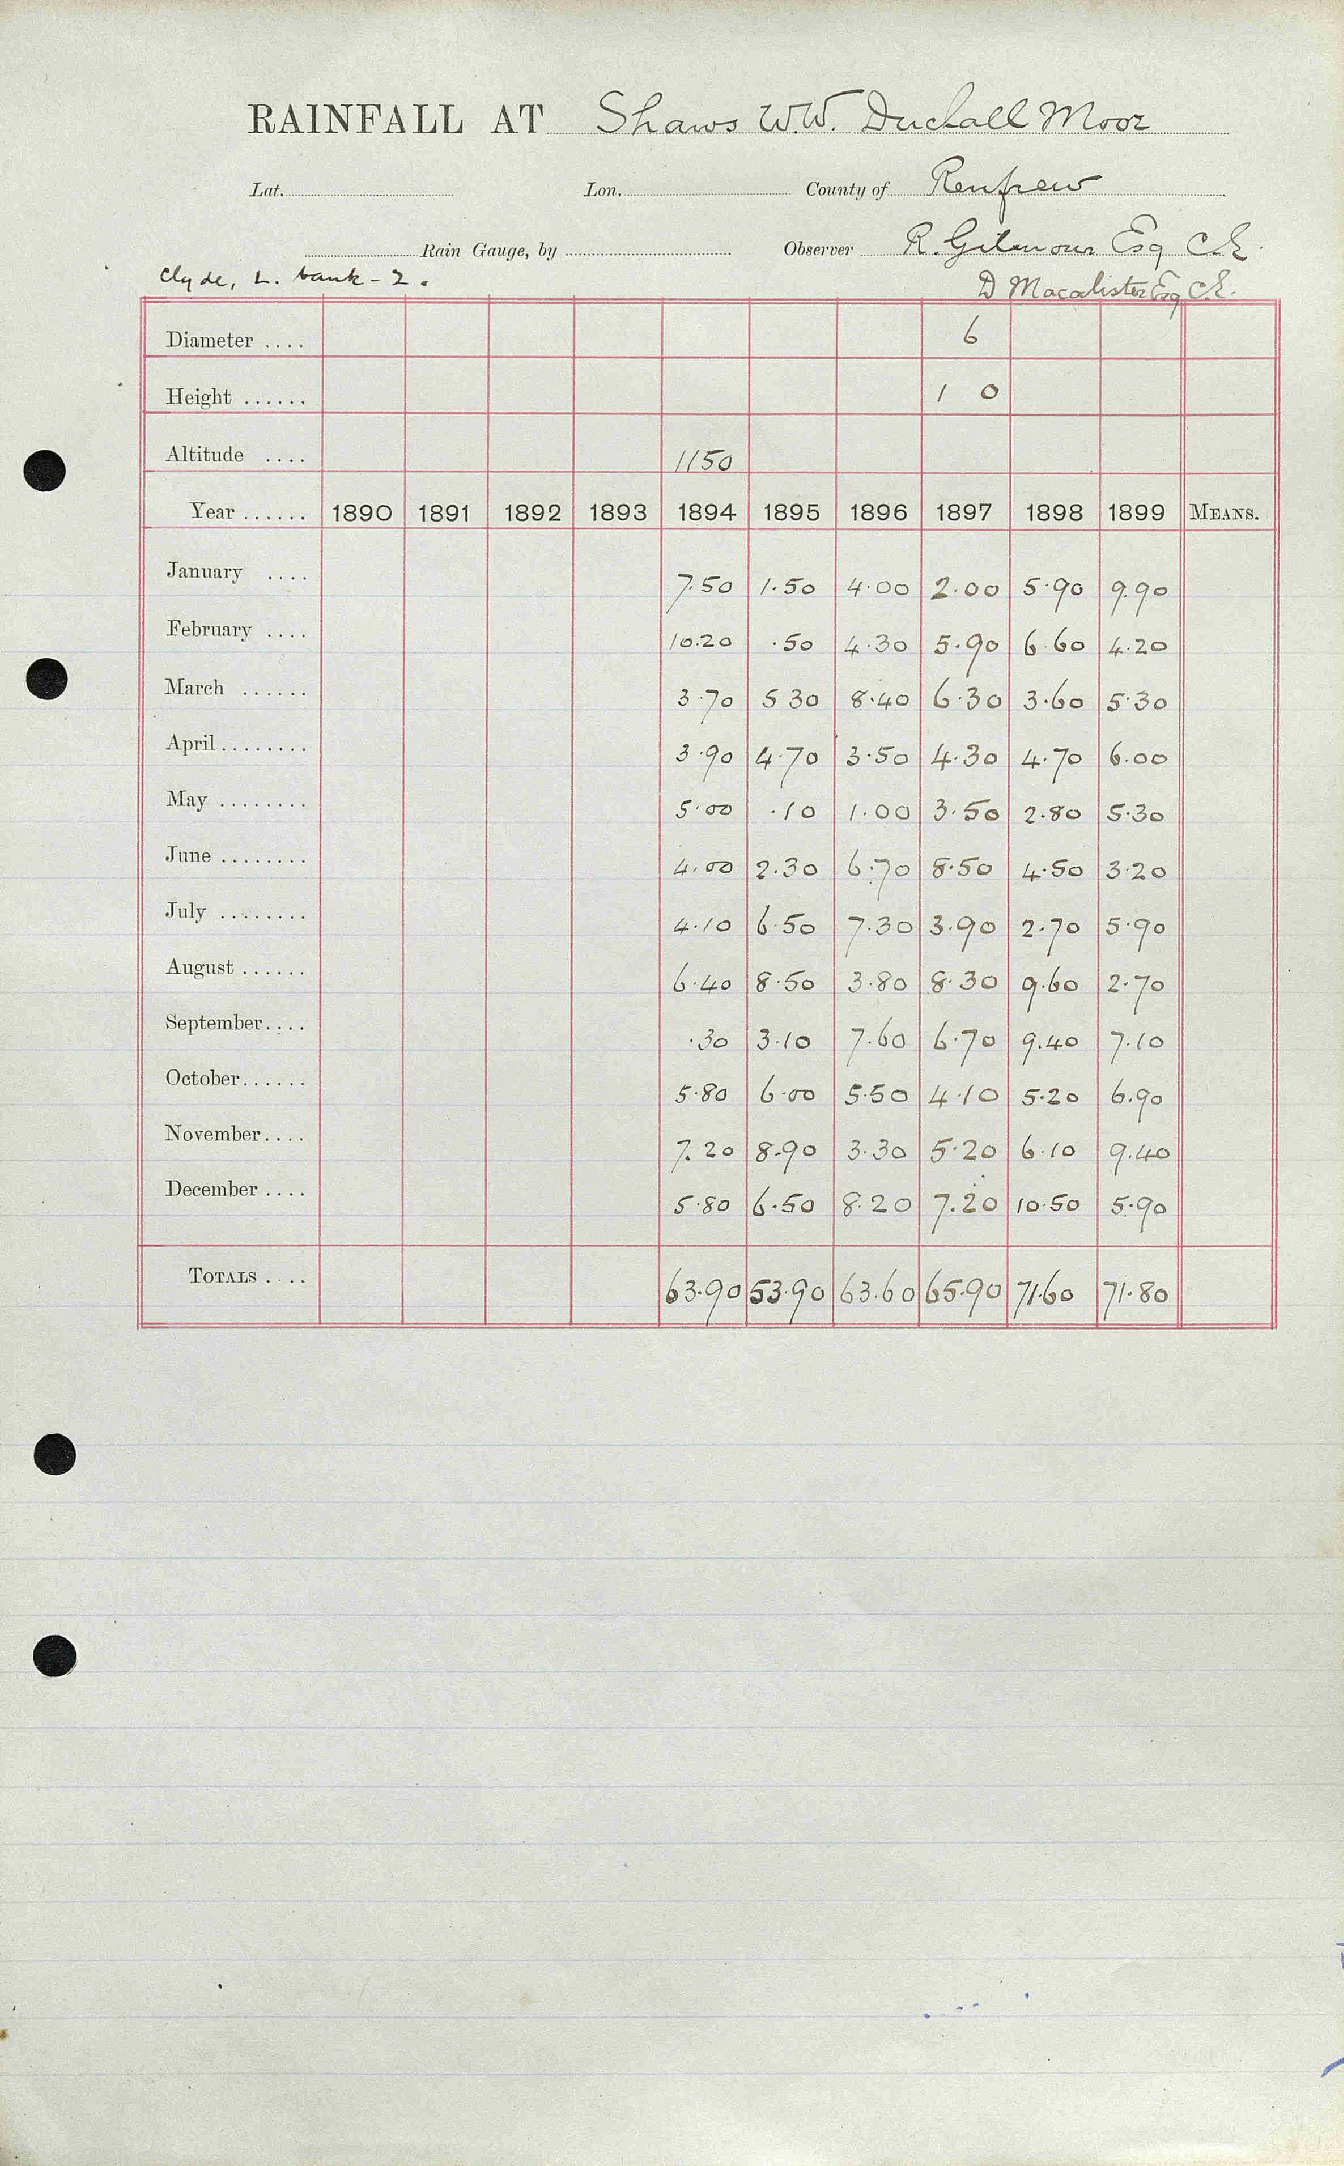 RAINFALL AT Shaws W.W. Duchall Moor
Lat. Lon. County of Renfrew
Rain Gauge, by Observer R. Gilmour Esq C.E.
Clyde, L. bank - 2. D Macalister Esq C.E.
Diameter .... 6
Height ...... 1 0
Altitude .... 1150
Year ...... 1890 1891 1892 1893 1894 1895 1896 1897 1898 1899 MEANS.
January .... 7.50 1.50 4.00 2.00 5.90 9.90
February .... 10.20 .50 4.30 5.90 6.60 4.20
March ...... 3.70 5 30 8.40 6.30 3.60 5.30
April ........ 3.90 4.70 3.50 4.30 4.70 6.00
May ........ 5.00 .10 1.00 3.50 2.80 5.30
June ........ 4.00 2.30 6.70 8.50 4.50 3.20
July ........ 4.10 6.50 7.30 3.90 2.70 5.90
August ...... 6.40 8.50 3.80 8.30 9.60 2.70
September.... .30 3.10 7.60 6.70 9.40 7.10
October...... 5.80 6.00 5.50 4.10 5.20 6.90
November.... 7.20 8.90 3.30 5.20 6.10 9.40
December .... 5.80 6.50 8.20 7.20 10.50 5.90
TOTALS .... 63.90 53.90 63.60 65.90 71.60 71.80